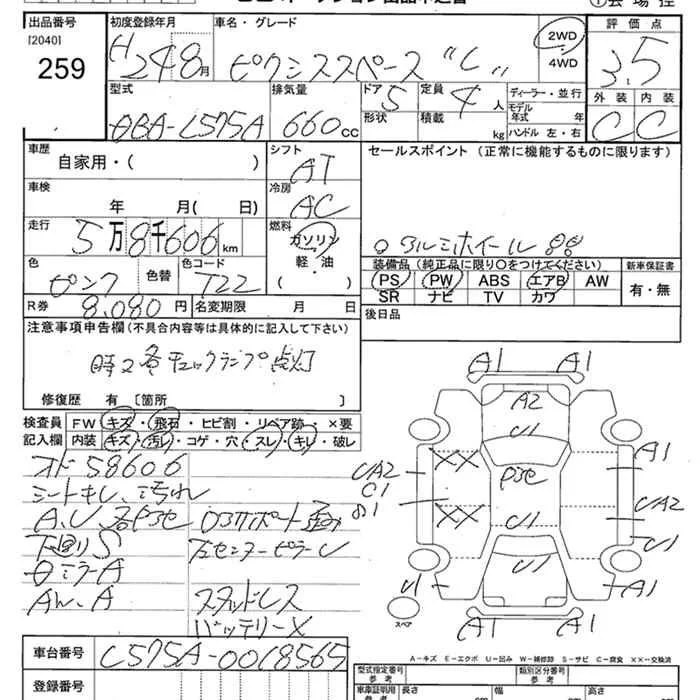 出品番号 初度登録年月 車名・グレード 評価点
[2040] 259 H24 8月 ピクシススペース "L" 2WD 4WD 3.5
型式 排気量 ドア 定員 ディーラー・並行 外装 内装
DBA-L575A 660cc 5 4人 モデル年式 年 C C
形状 積載 kg ハンドル 左・右
車歴 シフト セールスポイント (正常に機能するものに限ります)
自家用・( ) AT
車検 冷房
年 月( 日) AC
走行 燃料
5万8千606km ガソリン アルミホイール
色 色替 色コード 軽・油 装備品 (純正品に限り○をつけてください) 新車保証書
ピンク T22 ( ) PS PW ABS エアB AW 有・無
SR ナビ TV カワ
R券 8,080円 名変期限 月 日 後日品
注意事項申告欄(不具合内容等は具体的に記入して下さい)
時々各チェックランプ点灯
修復歴 有 [箇所
検査員 FW キズ・飛石・ヒビ割・リペア跡・×要
記入欄 内装 キズ・汚レ・コゲ・穴・スレ・キレ・破レ
オド 58606
シートキレ、汚れ
A,U
下廻りS
ミラーA
スタッドレス
バッテリーX
A1 A1
A2
U1
XX A1
UA2 C1 UA2
XX U1 U1
U1 U1 A1
A1 A1
スペア
A-キズ E-エクボ U-凹み W-補修跡 S-サビ C-腐食 ××-交換済
車台番号 L575A-0018565 型式指定番号 参考 類別区分番号 参考
登録番号 車庫証明用 参考 長さ 幅 高さ